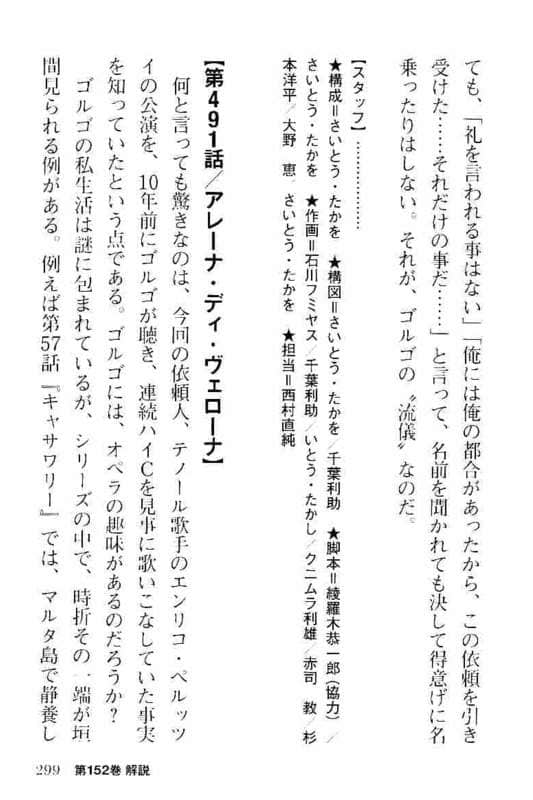 ても、「礼を言われる事はない」「俺には俺の都合があったから、この依頼を引き
受けた……それだけの事だ……」と言って、名前を聞かれても決して得意げに名
乗ったりはしない。それが、ゴルゴの〝流儀〟なのだ。
【スタッフ】………………
★構成＝さいとう・たかを　★構図＝さいとう・たかを／千葉利助　★脚本＝綾羅木恭一郎（協力）／
さいとう・たかを　★作画＝石川フミヤス／千葉利助／いとう・たかし／クニムラ利雄／赤司　教／杉
本洋平／大野　恵／さいとう・たかを　★担当＝西村直純
【第491話／アレーナ・ディ・ヴェローナ】
何と言っても驚きなのは、今回の依頼人、テノール歌手のエンリコ・ペルッツ
ィの公演を、10年前にゴルゴが聴き、連続ハイCを見事に歌いこなしていた事実
を知っていたという点である。ゴルゴには、オペラの趣味があるのだろうか？
ゴルゴの私生活は謎に包まれているが、シリーズの中で、時折その一端が垣
間見られる例がある。例えば第57話『キャサワリー』では、マルタ島で静養し
299　第152巻 解説